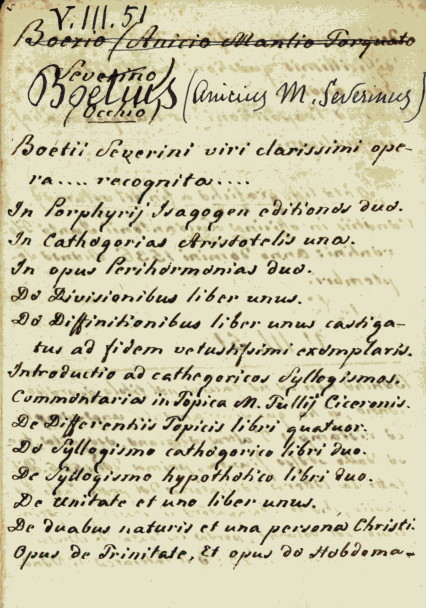 V.III.51
Boezio (Anicio Manlio Torquato
Severino)
Boetius (Anicius M. Severinus)
Boetii Severini viri clarissimi ope-
ra.... recognita....
In Porphyrij Isagogen editiones duæ.
In Cathegorias Aristotelis una.
In opus Perihermenias duæ.
De Divisionibus liber unus.
De Diffinitionibus liber unus castiga-
tus ad fidem vetustissimi exemplaris.
Introductio ad cathegoricos Syllogismos.
Commentaria in Topica M. Tullij Ciceronis.
De Differentiis Topicis libri quatuor.
De Syllogismo cathegorico libri duo.
De Syllogismo hypothetico libri duo.
De Unitate et uno liber unus.
De duabus naturis et una persona Christi.
Opus de Trinitate, Et opus de Hebdoma-